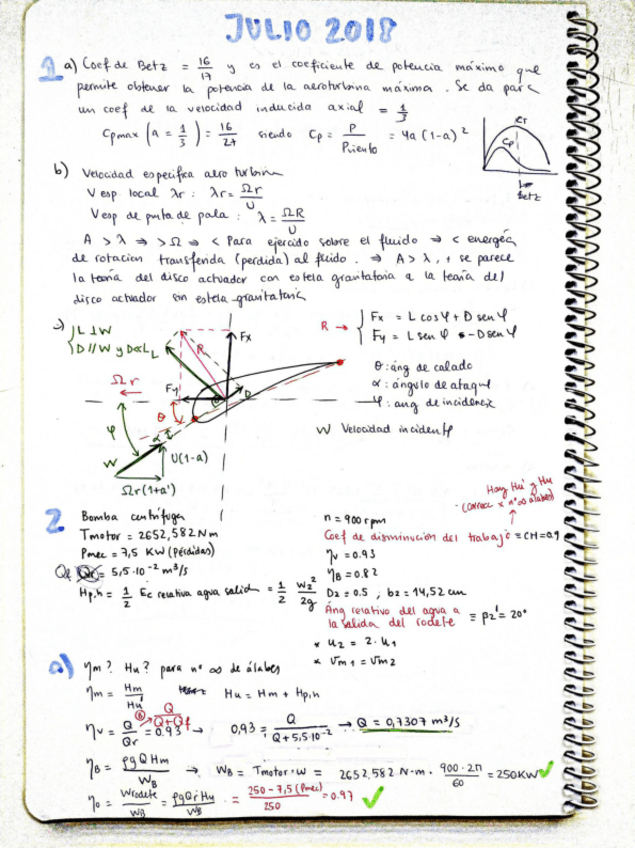 JULIO 2018
1 a) Coef de Betz = 16/17 y es el coeficiente de potencia máximo que
permite obtener la potencia de la aeroturbina máxima. Se da para
un coef de la velocidad inducida axial = 1/3
Cpmax (a = 1/3) = 16/27 siendo Cp = P/Pviento = 4a (1-a)²
CT
Cp
Betz
b) Velocidad especifica aeroturbina
V esp local λr : λr = Ωr/U
V esp de punta de pala : λ = ΩR/U
A > λ ⇒ >Ω ⇒ < Par ejercido sobre el fluido ⇒ < energía
de rotacion transferida (perdida) al fluido. ⇒ A > λ, + se parece
la teoría del disco actuador con estela giratoria a la teoría del
disco actuador sin estela giratoria
c) { L ⊥ W
D // W y D<<L
L
R
Fx
Fy
D
Ωr
θ
φ
α
W
U(1-a)
Ωr(1+a')
R → { Fx = L cosφ + D senφ
Fy = L senφ - D senφ
θ: áng de calado
α: ángulo de ataque
φ: ang de incidencia
W Velocidad incidente
2 Bomba centrífuga
Tmotor = 2652,582 Nm
Pmec = 7,5 KW (Pérdidas)
= 5,5·10⁻² m³/s
Hp,h = 1/2 Ec relativa agua salid = 1/2 w₂²/2g
Hay Hu' y Hu
(correc x nº ∞ álabes)
n = 900 rpm
Coef de disminución del trabajo = CH = 0.9
ηv = 0.93
ηB = 0.82
D₂ = 0.5 , b₂ = 14,52 cm
Áng relativo del agua a
la salida del rodete = β₂' = 20°
* u₂ = 2·u₁
* vm₁ = vm₂
a) ηm? Hu? para nº ∞ de álabes
ηm = Hm/Hu Hu = Hm + Hp,h
ηv = Q/Qr = 0.93 → Q/(Q+Qf) 0,93 = Q/(Q+5,5·10⁻²) → Q = 0,7307 m³/s
ηB = ρgQHm/WB → WB = Tmotor·ω = 2652,582 N·m · 900·2π/60 = 250KW ✓
ηo = Wrodete/WB = ρgQrHu/WB = 250-7,5 (Pmec)/250 = 0.97 ✓